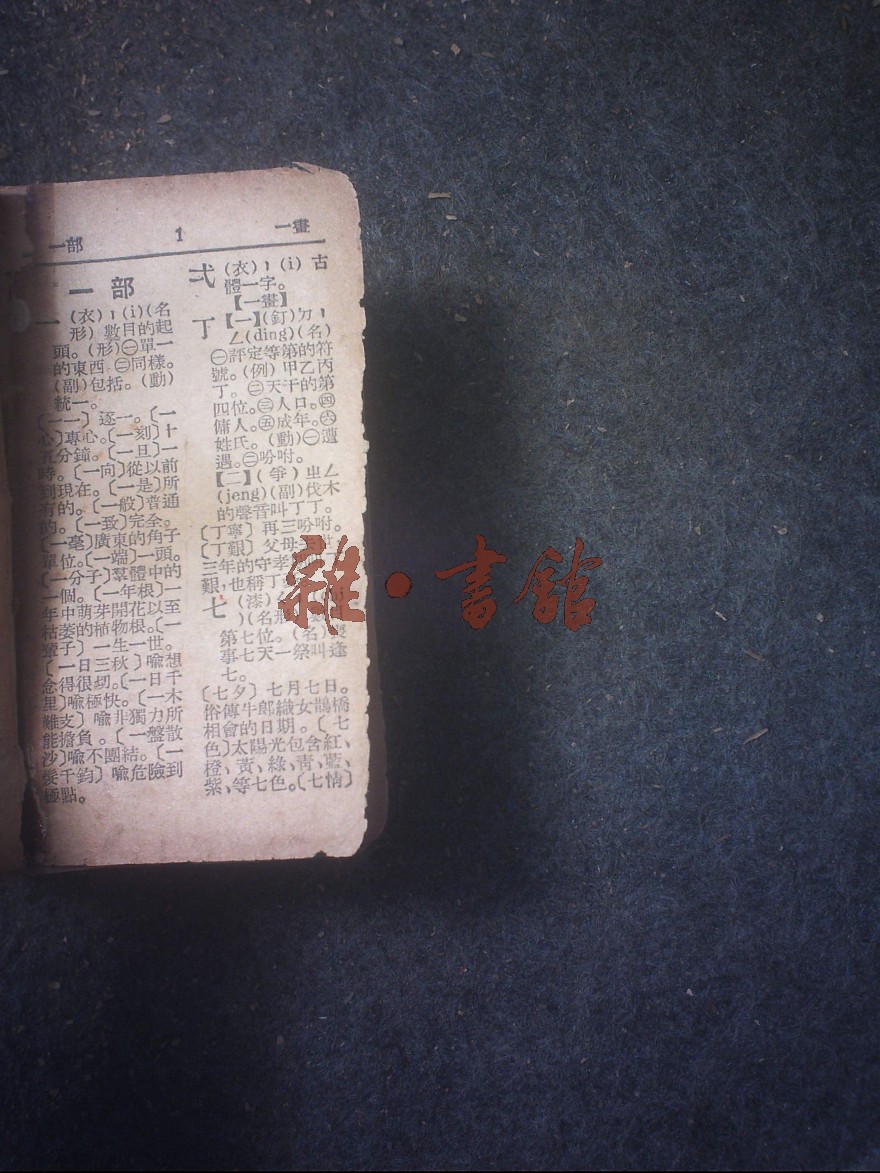 一部 1 一畫
一部
一 (衣)ㄧ(i)(名
形) 數目的起
頭。(形)㊀單一
的東西 ㊁同樣。
(副)包括。(動)
統一。
〔一一〕逐一。〔一
心〕專心。〔一刻〕十
五分鐘。〔一旦〕一
時。〔一向〕從以前
到現在。〔一是〕所
有的。〔一般〕普通
的。〔一致〕完全。
〔一毫〕廣東的角子
單位。〔一端〕一頭。
〔一分子〕羣體中的
一個。〔一年根〕一
年中萌芽開花以至
枯萎的植物根。〔一
輩子〕一生一世。
〔一日三秋〕喩想
念得很切。〔一日千
里〕喩極快。〔一木
難支〕喩非獨力所
能擔負。〔一盤散
沙〕喩不團結。〔一
髮千鈞〕喩危險到
極點。
弌 (衣)ㄧ(i)古
體一字。
【一畫】
丁 【一】(釘)ㄉㄧ
ㄥ(ding)(名)
㊀評定等第的符
號。(例)甲乙丙
丁。㊁天干的第
四位。㊂人口。㊃
傭人。㊄成年。㊅
姓氏。(動)㊀遭
遇。㊁吩咐。
【二】(爭)ㄓㄥ
(jeng)(副)伐木
的聲音叫丁丁。
〔丁寧〕再三吩咐。
〔丁艱〕父母去世
三年的守孝
艱,也稱丁
七 (漆)
)(名形)
第七位。(名)喪
事七天一祭叫逢
七。
〔七夕〕七月七日。
俗傳牛郎織女鵲橋
相會的日期。〔七
色〕太陽光包含紅、
橙、黃、綠、靑、藍、
紫、等七色。〔七情〕
雜·書館